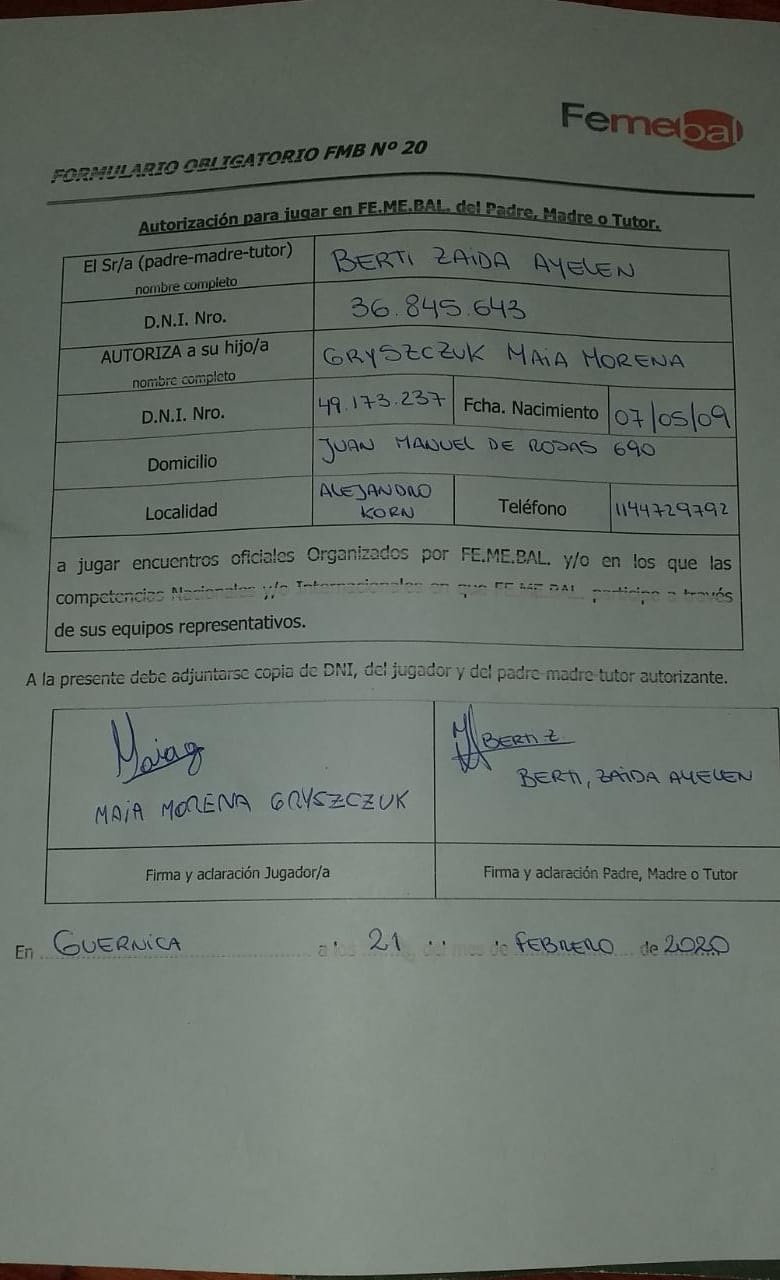 Femebal
FORMULARIO OBLIGATORIO FMB Nº 20
Autorización para jugar en FE.ME.BAL. del Padre, Madre o Tutor.
El Sr/a (padre-madre-tutor)
nombre completo
BERTI ZAIDA AYELEN
D.N.I. Nro.
36.845.643
AUTORIZA a su hijo/a
nombre completo
GRYSZCZUK MAIA MORENA
D.N.I. Nro.
49.173.237
Fcha. Nacimiento
07/05/09
Domicilio
JUAN MANUEL DE ROSAS 690
Localidad
ALEJANDRO
KORN
Teléfono
1144729792
a jugar encuentros oficiales Organizados por FE.ME.BAL. y/o en los que las
competencias Nacionales y/o Internacionales en que FE.ME.BAL. participe a través
de sus equipos representativos.
A la presente debe adjuntarse copia de DNI, del jugador y del padre-madre-tutor autorizante.
Maiag
MAIA MORENA GRYSZCZUK
BERTI Z
BERTI, ZAIDA AYELEN
Firma y aclaración Jugador/a
Firma y aclaración Padre, Madre o Tutor
En GUERNICA a los 21 del mes de FEBRERO de 2020